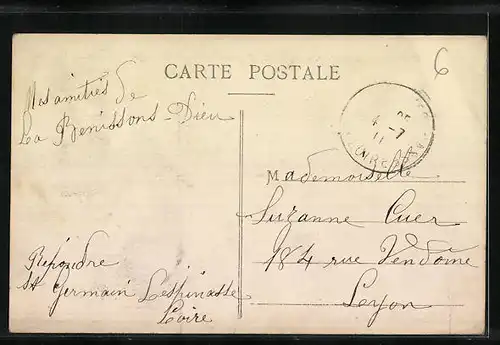 CARTE POSTALE
6
Mes amitiés de
La Benissons-Dieu
Répondre
St Germain Lespinasse
Loire
Mademoiselle
Suzanne Cuer
184 rue Vendôme
Lyon